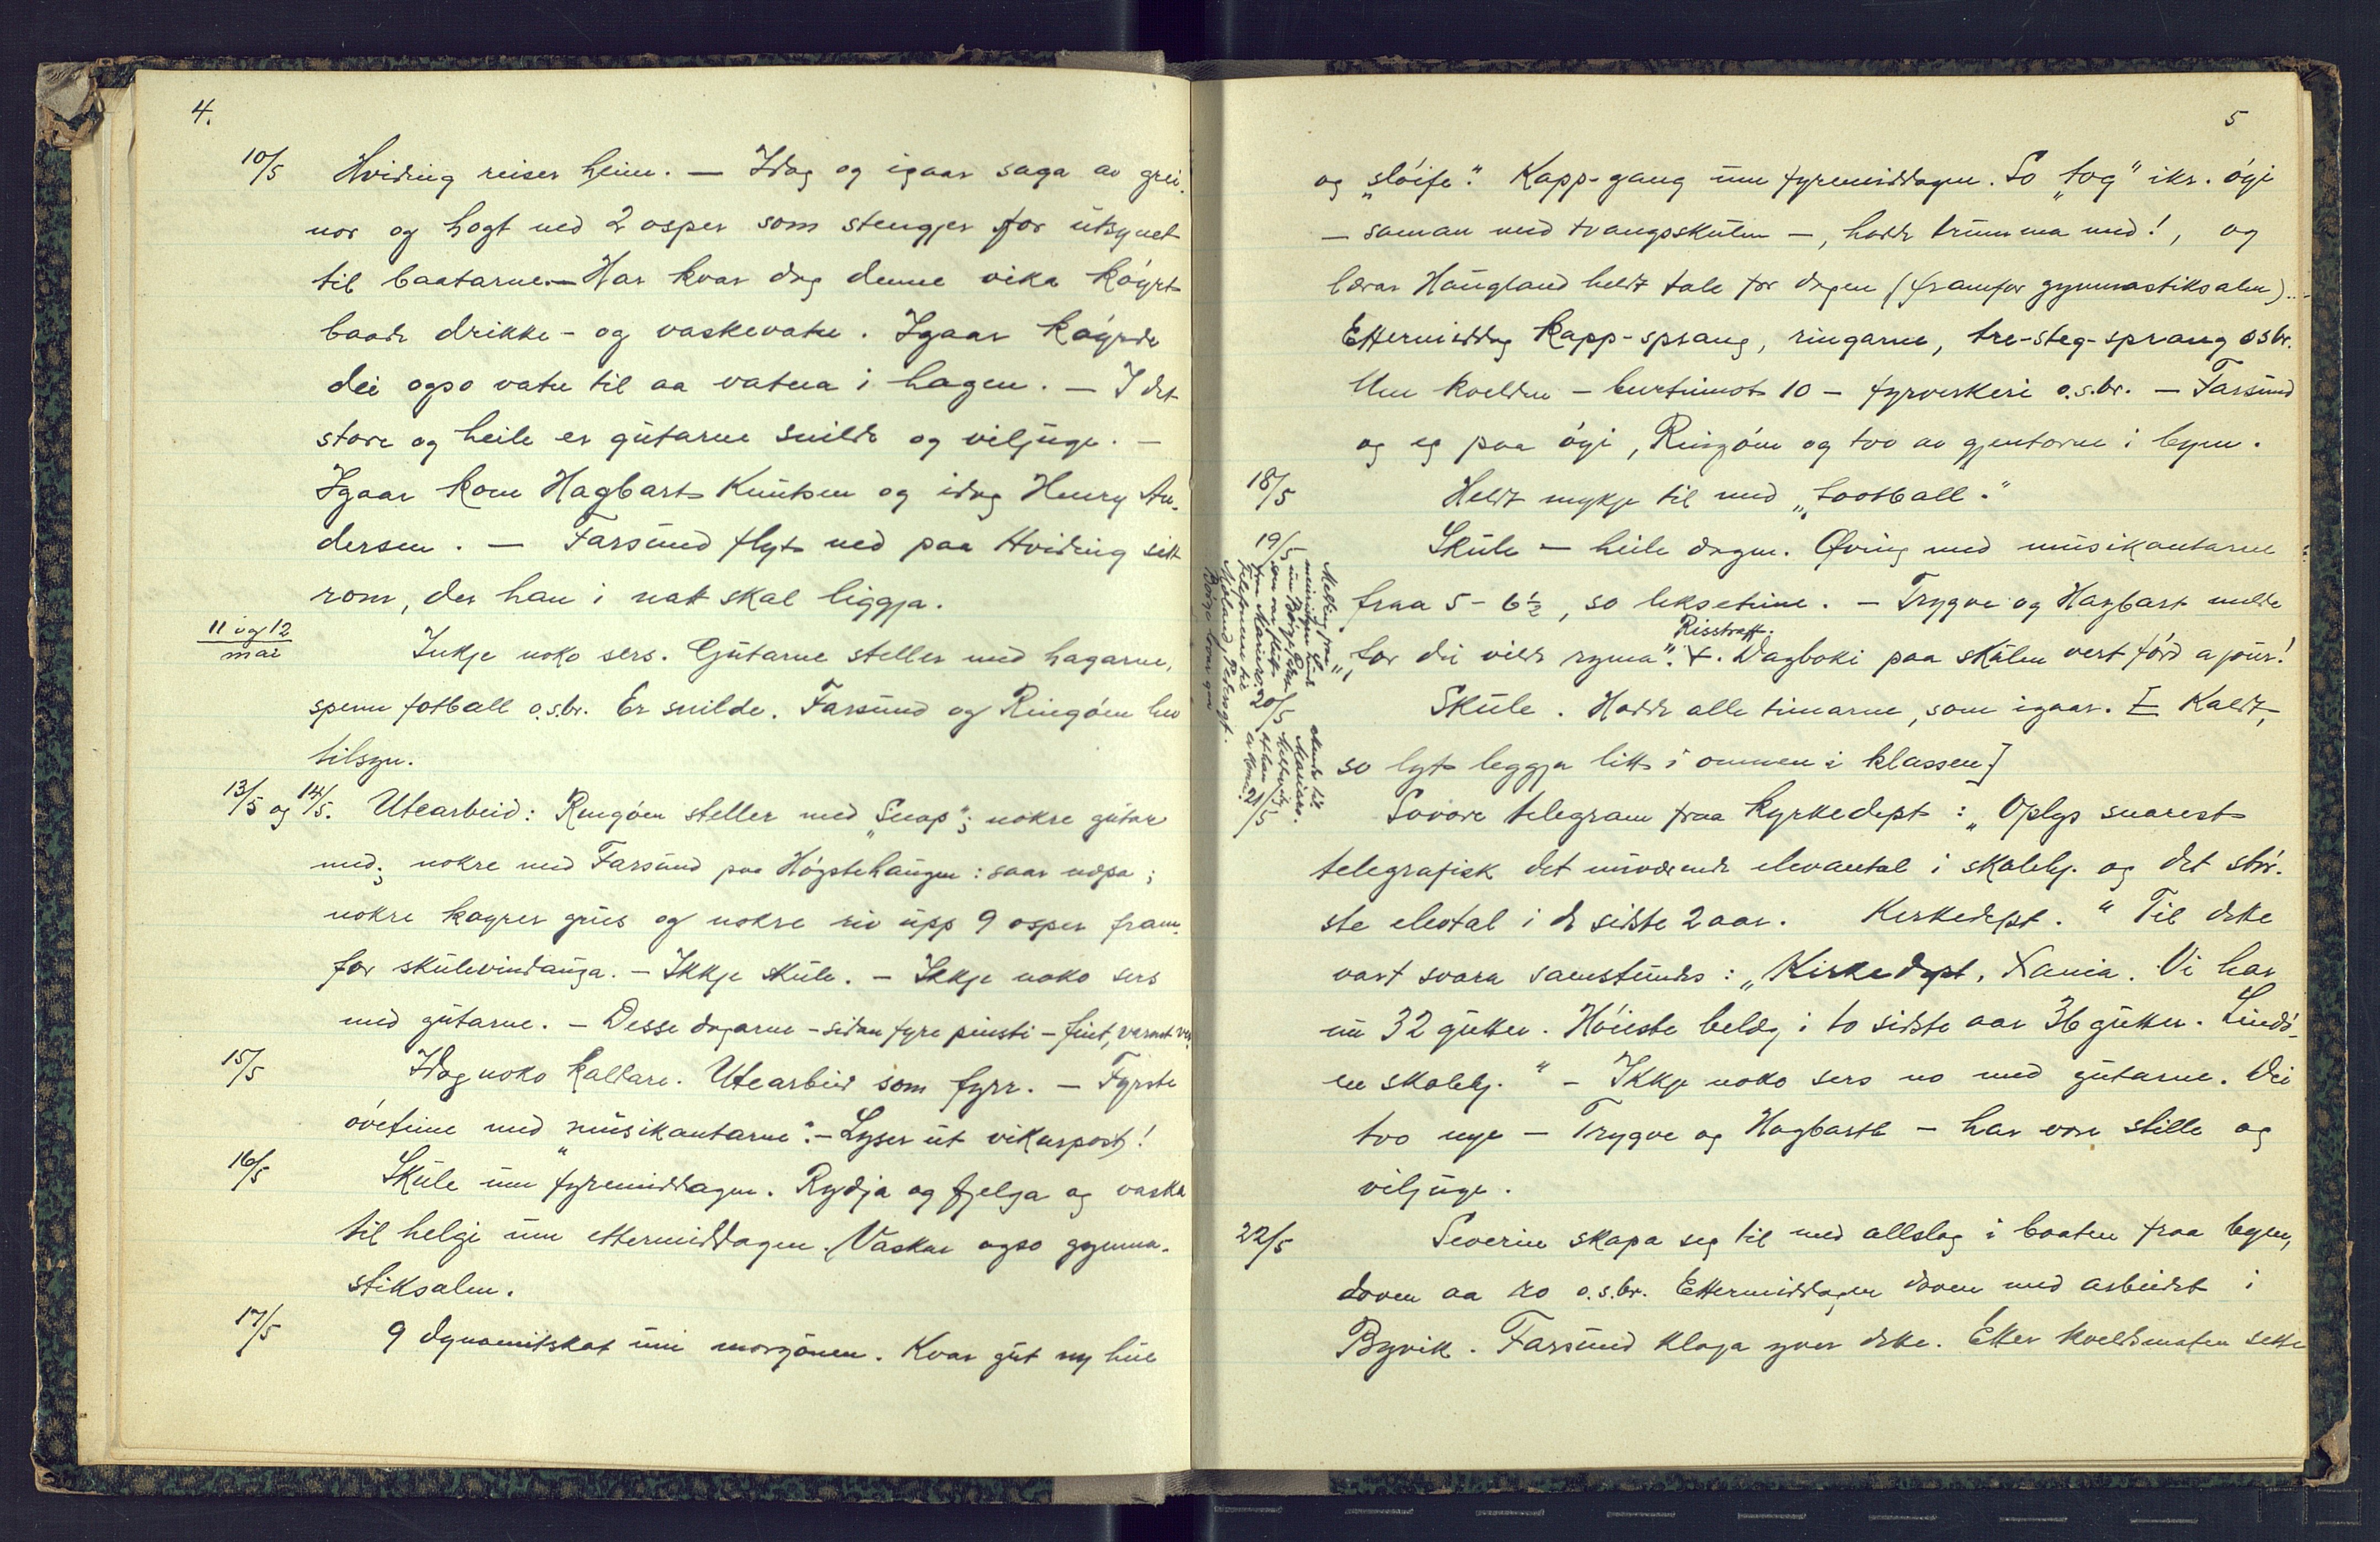 4.
10/5 Hviding reiser heim. — Idag og igaar saga av grei-
nor og hogt ned 2 osper som stengjer for utsynet
til baatarne. — Har kvar dag denne vika køyrt
baade drikke- og vaskevatn. Igaar køyrde
dei ogso vatn til aa vatna i hagen. — I det
store og heile er gutarne snilde og viljuge. —
Igaar kom Hagbart Knutsen og idag Henry An-
dersen. — Farsund flyt ned paa Hviding sitt
rom, der han i natt skal liggja.
11 og 12
mai
Inkje noko sers. Gutarne steller med hagarne,
spenn fotball o.s.br. Er snilde. Farsund og Ringøen hev
tilsyn.
13/5 og 14/5. Utearbeid: Ringøen steller med „Snap"; nokre gutar
med; nokre med Farsund paa Høgstehaugen: saar næpa;
nokre køyrer grus og nokre riv upp 9 osper fram-
for skulevindauga. — Ikkje skule. — Ikkje noko sers
med gutarne. — Desse dagarne - sidan fyre pinsti - fint, varmt
15/5 Idag noko kaldare. Utearbeid som fyrr. — Fyrste
øvetime med „musikantarne". — Lyser ut vikarpost!
16/5 Skule um fyremiddagen. Rydja og fjelga og vaska
til helgi um ettermiddagen. Vaskar ogso gymna-
stiksalen.
17/5 9 dynamitskot um morgonen. Kvar gut ny hue
5
og „sløife". Kapp-gang um fyremiddagen. So „tog" ikr. øyi
— saman med tvangsskulen —, hadde trumma med!, og
lærar Haugland heldt tale for dagen (framfor gymnastiksalen)...
Ettermiddag kapp-sprang, ringarne, tre-steg-sprang osbr.
Um kvelden — burtimot 10 — fyrverkeri o.s.br. — Farsund
og eg paa øyi, Ringøen og tvo av gjentorne i byen.
18/5 Heldt mykje til med „football."
19/5 Skule — heile dagen. Øving med musikantarne
fraa 5 - 6½, so leksetime. — Trygve og Hagbart melde
„for dei vilde ryma". Risstraff. +. Dagboki paa skulen vert førd a jour!
20/5 Skule. Hadde alle timarne, som igaar. [Kaldt,
so lyt leggja litt i omnen i klassen.]
21/5 Svara telegram fraa kyrkedept: „Oplys snarest
telegrafisk det nuværende elevantal i skolehj. og det stør-
ste elevtal i de sidste 2 aar. Kirkedept." Til dette
vart svara samstundes: „Kirkedept, Xania. Vi har
nu 32 gutter. Høieste belæg i to sidste aar 36 gutter. Lindø-
en skolehj." — Ikkje noko sers no med gutarne. Dei
tvo nye — Trygve og Hagbarth — har vore stille og
viljuge.
22/5 Severin skapa seg til med allslag i baaten fraa byen,
doven aa ro o.s.br. Ettermiddagen doven med arbeidet i
Byvik. Farsund klaga yver dette. Etter kveldsmaten sette